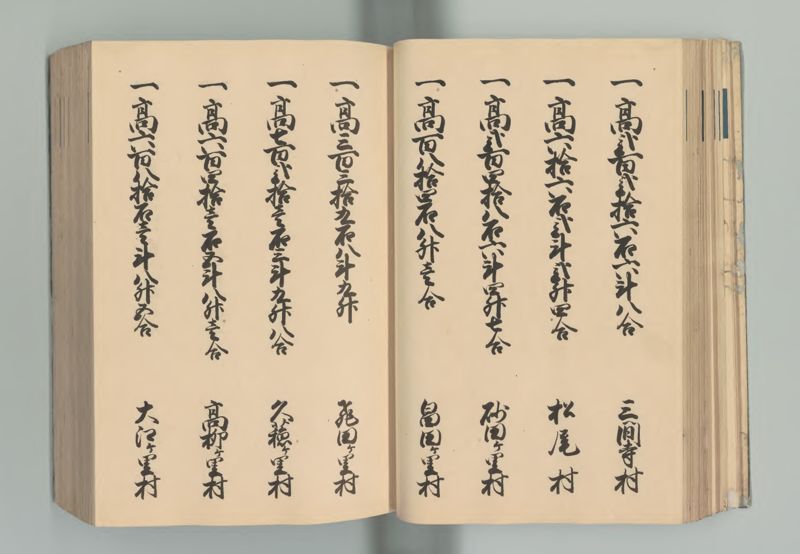 一高弐百弐拾六石六斗八合 三間寺村
一高六拾六石弐斗弐升四合 松尾村
一高弐百四拾八石六斗四升七合 砂田ヶ里村
一高百八拾四石八升壱合 畠田ヶ里村
一高三百三拾五石八斗九升 飛田ヶ里村
一高七百弐拾壱石三斗九升八合 久穂ヶ里村
一高六百四拾壱石五斗八升壱合 高柳ヶ里村
一高六百八拾石壱斗八升五合 大江ヶ里村